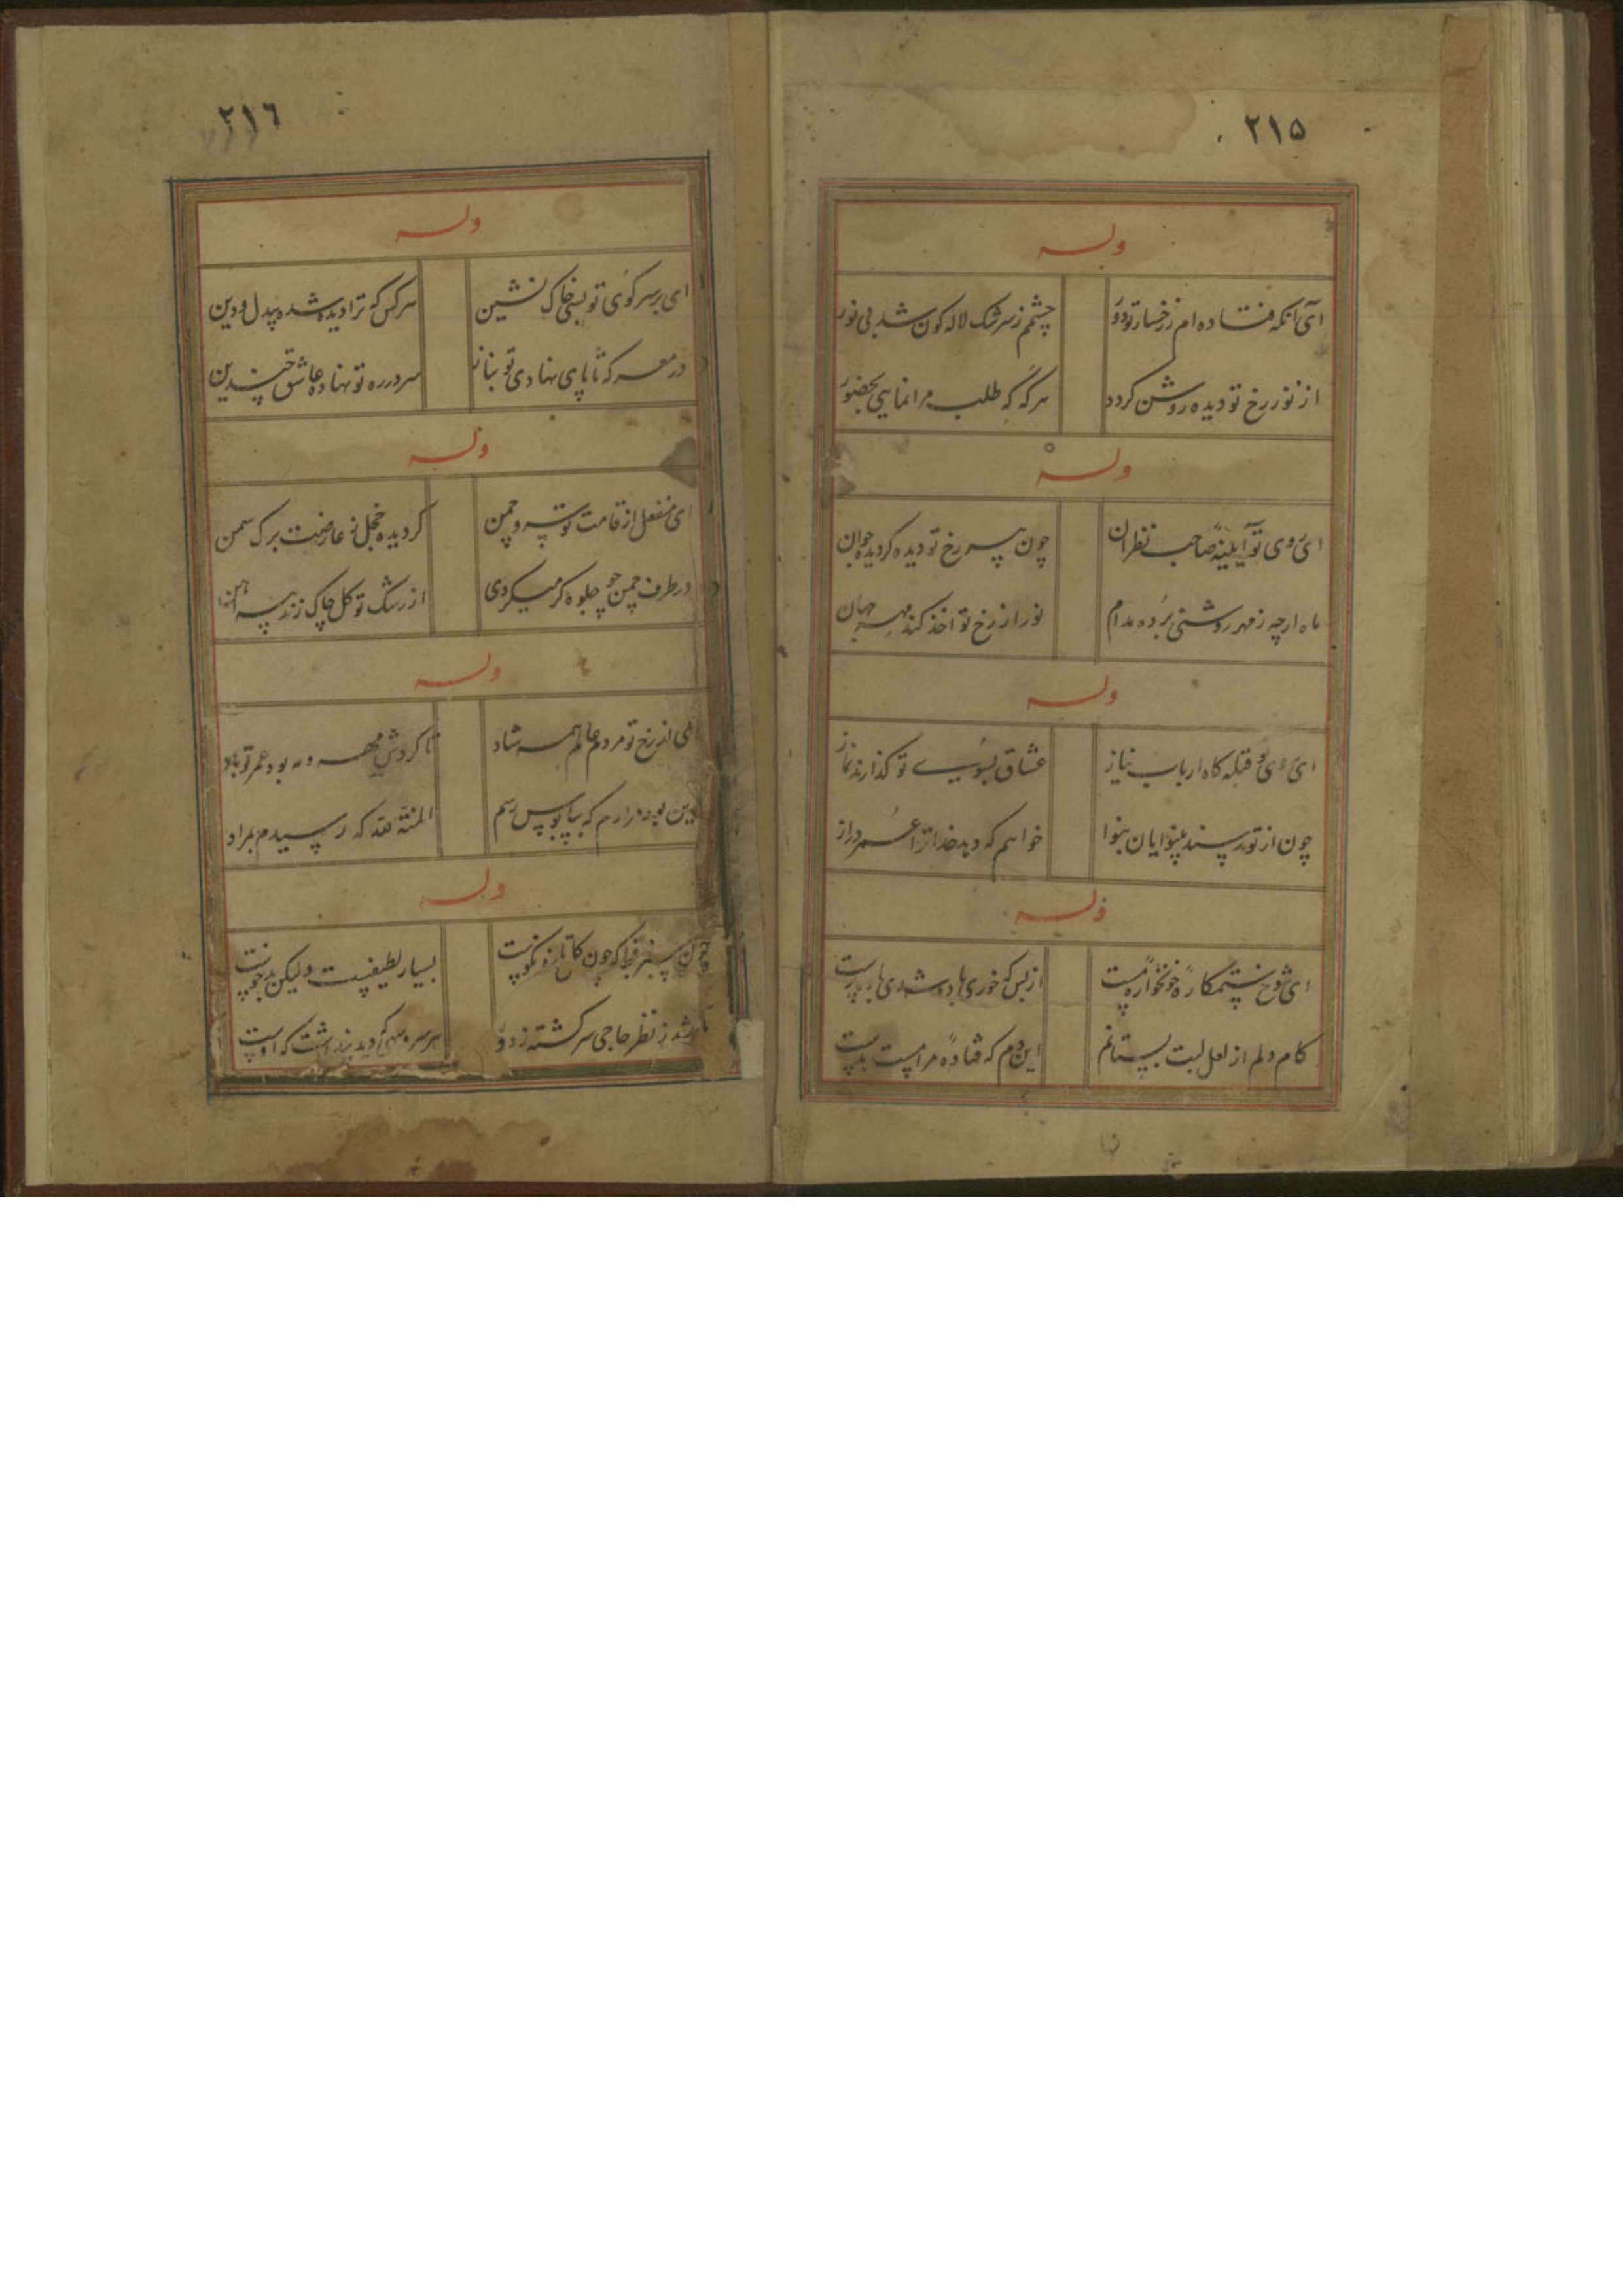 ٢١٥
وله
ای آنکه فتاده ام ز رخسار تو دور چشمم ز سرشک لاله کون شد بی نور
از نور رخ تو دیده روشن کردد هرکه که طلب مرا نمایی بحضور
وله
ای روی تو آیینهٔ صاحب نظران چون پیر رخ تو دیده کردیده جوان
ماه ارچه ز مهر روشنی برده مدام نور از رخ تو اخذ کند مهر جهان
وله
ای روی تو قبله کاه ارباب نیاز عشاق بسوی تو کذارند نماز
چون از تو رسند بینوایان بنوا خواهم که دهد خدا ترا عمر دراز
وله
ای شوخ ستمکارهٔ خونخوارهٔ مست از بس که خوری باده شدی باده پرست
کام دلم از لعل لبت بستانم این دم که فتادهٔ مرا مست بدست
٢١٦
وله
ای بر سر کوی تو بسی خاک نشین هرکس که ترا دیده شده بیدل و دین
در معرکه تا پای نهادی تو سر در ره تو نهاده عاشق چندین
وله
ای منفعل از قامت تو سرو چمن کردیده خجل ز عارضت برک سمن
در طرف چمن چو جلوه کر میکردی از رشک تو کل چاک زند پیراهن
وله
ای از رخ تو مردم عالم همه شاد تا کردش مهر و مه بود عمر تو باد
این بود مرادم که بپابوس رسم المنة لله که رسیدم بمراد
وله
چون سبز قبا که چون کل تازه نکوست بسیار لطیفست ولیکن بدخوست
شد ز نظر حاجی سرکشته ز دور هر سرو سهی که دید پنداشت که اوست